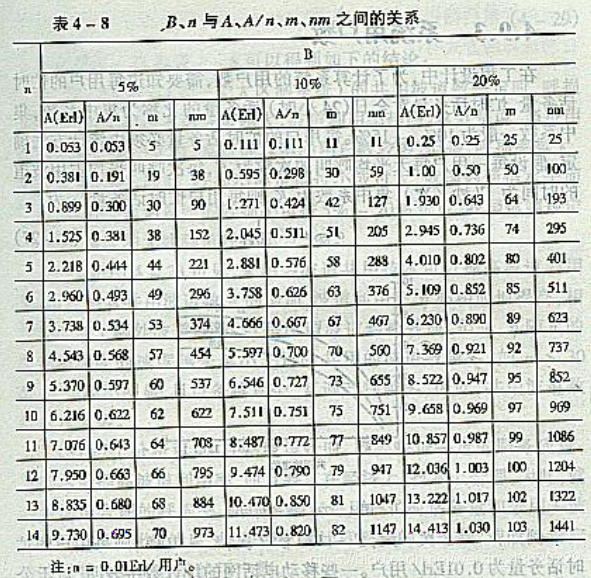 表4-8 B、n与A、A/n、m、nm之间的关系
B
n 5% 10% 20%
A(Erl) A/n m nm A(Erl) A/n m nm A(Erl) A/n m nm
1 0.053 0.053 5 5 0.111 0.111 11 11 0.25 0.25 25 25
2 0.381 0.191 19 38 0.595 0.298 30 59 1.00 0.50 50 100
3 0.899 0.300 30 90 1.271 0.424 42 127 1.930 0.643 64 193
4 1.525 0.381 38 152 2.045 0.511 51 205 2.945 0.736 74 295
5 2.218 0.444 44 221 2.881 0.576 58 288 4.010 0.802 80 401
6 2.960 0.493 49 296 3.758 0.626 63 376 5.109 0.852 85 511
7 3.738 0.534 53 374 4.666 0.667 67 467 6.230 0.890 89 623
8 4.543 0.568 57 454 5.597 0.700 70 560 7.369 0.921 92 737
9 5.370 0.597 60 537 6.546 0.727 73 655 8.522 0.947 95 852
10 6.216 0.622 62 622 7.511 0.751 75 751 9.658 0.969 97 969
11 7.076 0.643 64 708 8.487 0.772 77 849 10.857 0.987 99 1086
12 7.950 0.663 66 795 9.474 0.790 79 947 12.036 1.003 100 1204
13 8.835 0.680 68 884 10.470 0.850 81 1047 13.222 1.017 102 1322
14 9.730 0.695 70 973 11.473 0.820 82 1147 14.413 1.030 103 1441
注:a = 0.01Erl/用户。